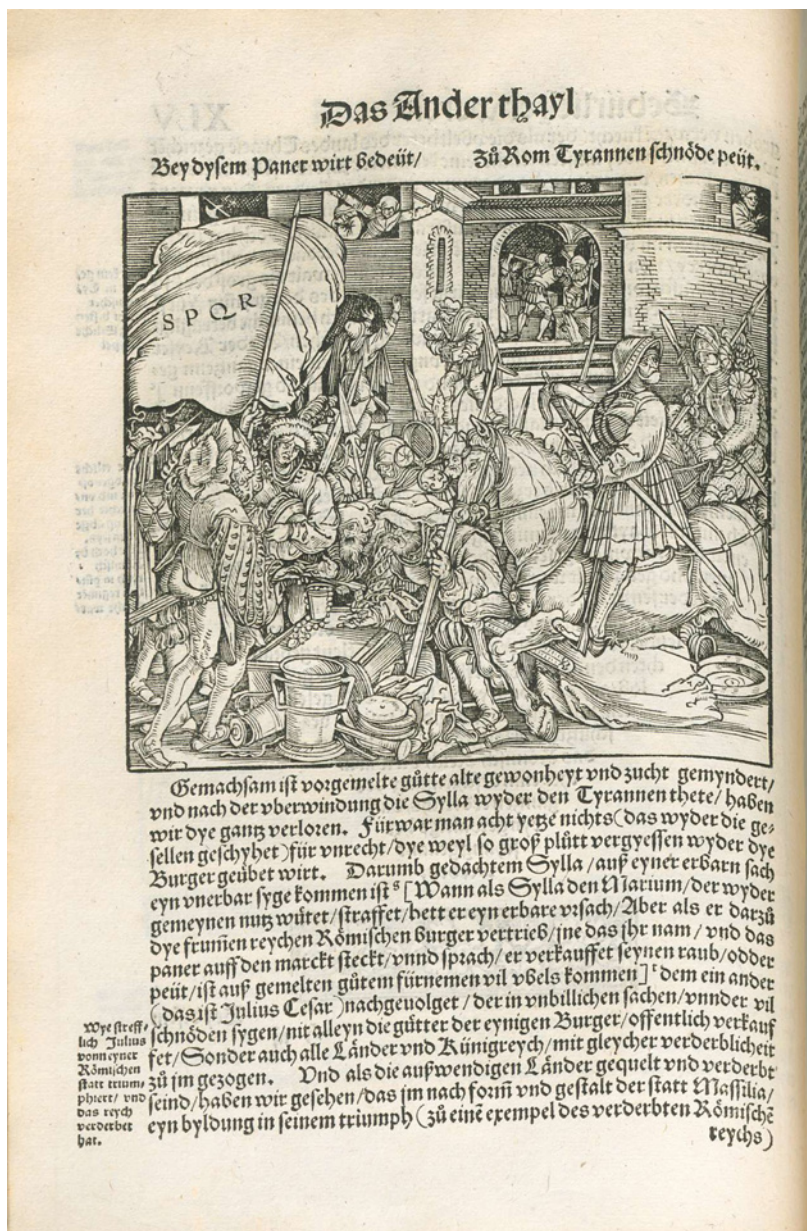 Das Ander thayl
Bey dysem Paner wirt bedeüt/ Zů Rom Tyrannen schnöde peüt.
S P Q R
Gemachsam ist vorgemelte gůtte alte gewonheyt vnd zucht gemyndert/
vnd nach der vberwindung die Sylla wyder den Tyrannen thete/ haben
wir dye gantz verloren. Fürwar man acht yetze nichts (das wyder die ge-
sellen geschyhet) für vnrecht/ dye weyl so groß plůtt vergyessen wyder dye
Burger geübet wirt. Darumb gedachtem Sylla / auß eyner erbarn sach
eyn vnerbar syge kommen ist s [Wann als Sylla den Marium/ der wyder
gemeynen nutz wůtet/ straffet/ hett er eyn erbare vrsach/ Aber als er darzů
dye frum̄en reychen Römischen burger vertrieb/ jne das jhr nam / vnd das
paner auff den marckt steckt/ vnnd sprach/ er verkauffet seynen raub/ odder
peüt/ ist auß gemelten gůtem fürnemen vil vbels kommen] t dem ein ander
(das ist Julius Cesar) nachgeuolget / der in vnbillichen sachen/ vnnder vil
schnöden sygen/ nit alleyn die gůtter der eynigen Burger/ offentlich verkauf
fet/ Sonder auch alle Länder vnd Künigreych/ mit gleycher verderblicheit
zů jm gezogen. Vnd als die außwendigen Länder gequelt vnd verderbt
seind/ haben wir gesehen/ das jm nach form̄ vnd gestalt der statt Massilia/
eyn byldung in seinem triumph (zů einē exempel des verderbten Römischē
reychs)
Wye streff-
lich Julius
vonn eyner
Römischen
statt trium-
phiert/ vnd
das reych
verderbet
hat.